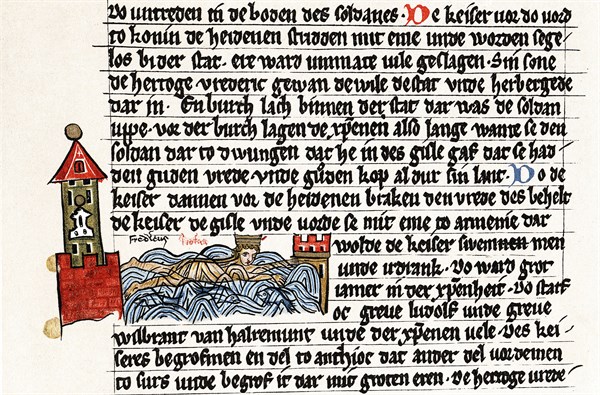 vo untreden in de boden des soldanes. De keiser vor do vord
to konin de heidenen stridden mit eme unde worden sege-
los bi der stat. ere ward ummate vile geslagen. Sin sone
de hertoge vrederic gewan de wile de stat unde herbergede
dar in. En burch lach binnen der stat dar was de soldan
uppe. vor der burch lagen de xpenen also lange wante se den
soldan dar to dwungen dat he in des gisle gaf dar se had-
den guden vrede unde guden kop al dur sin lant. Do de
keiser dannen vor de heidenen braken den vrede des behelt
de keiser de gisle unde vorde se mit eme to armenie dar
wolde de keiser swemmen
unde irdrank. Do ward grot
iamer in der xpenheit. Do starf
oc greve ludolf unde greve
wilbrant van halremunt unde der xpenen vele. Des kei-
seres begrof men en del to anthioc dat ander del vorden men
to surs unde begrof it dar mit groten eren. De hertoge vrede-